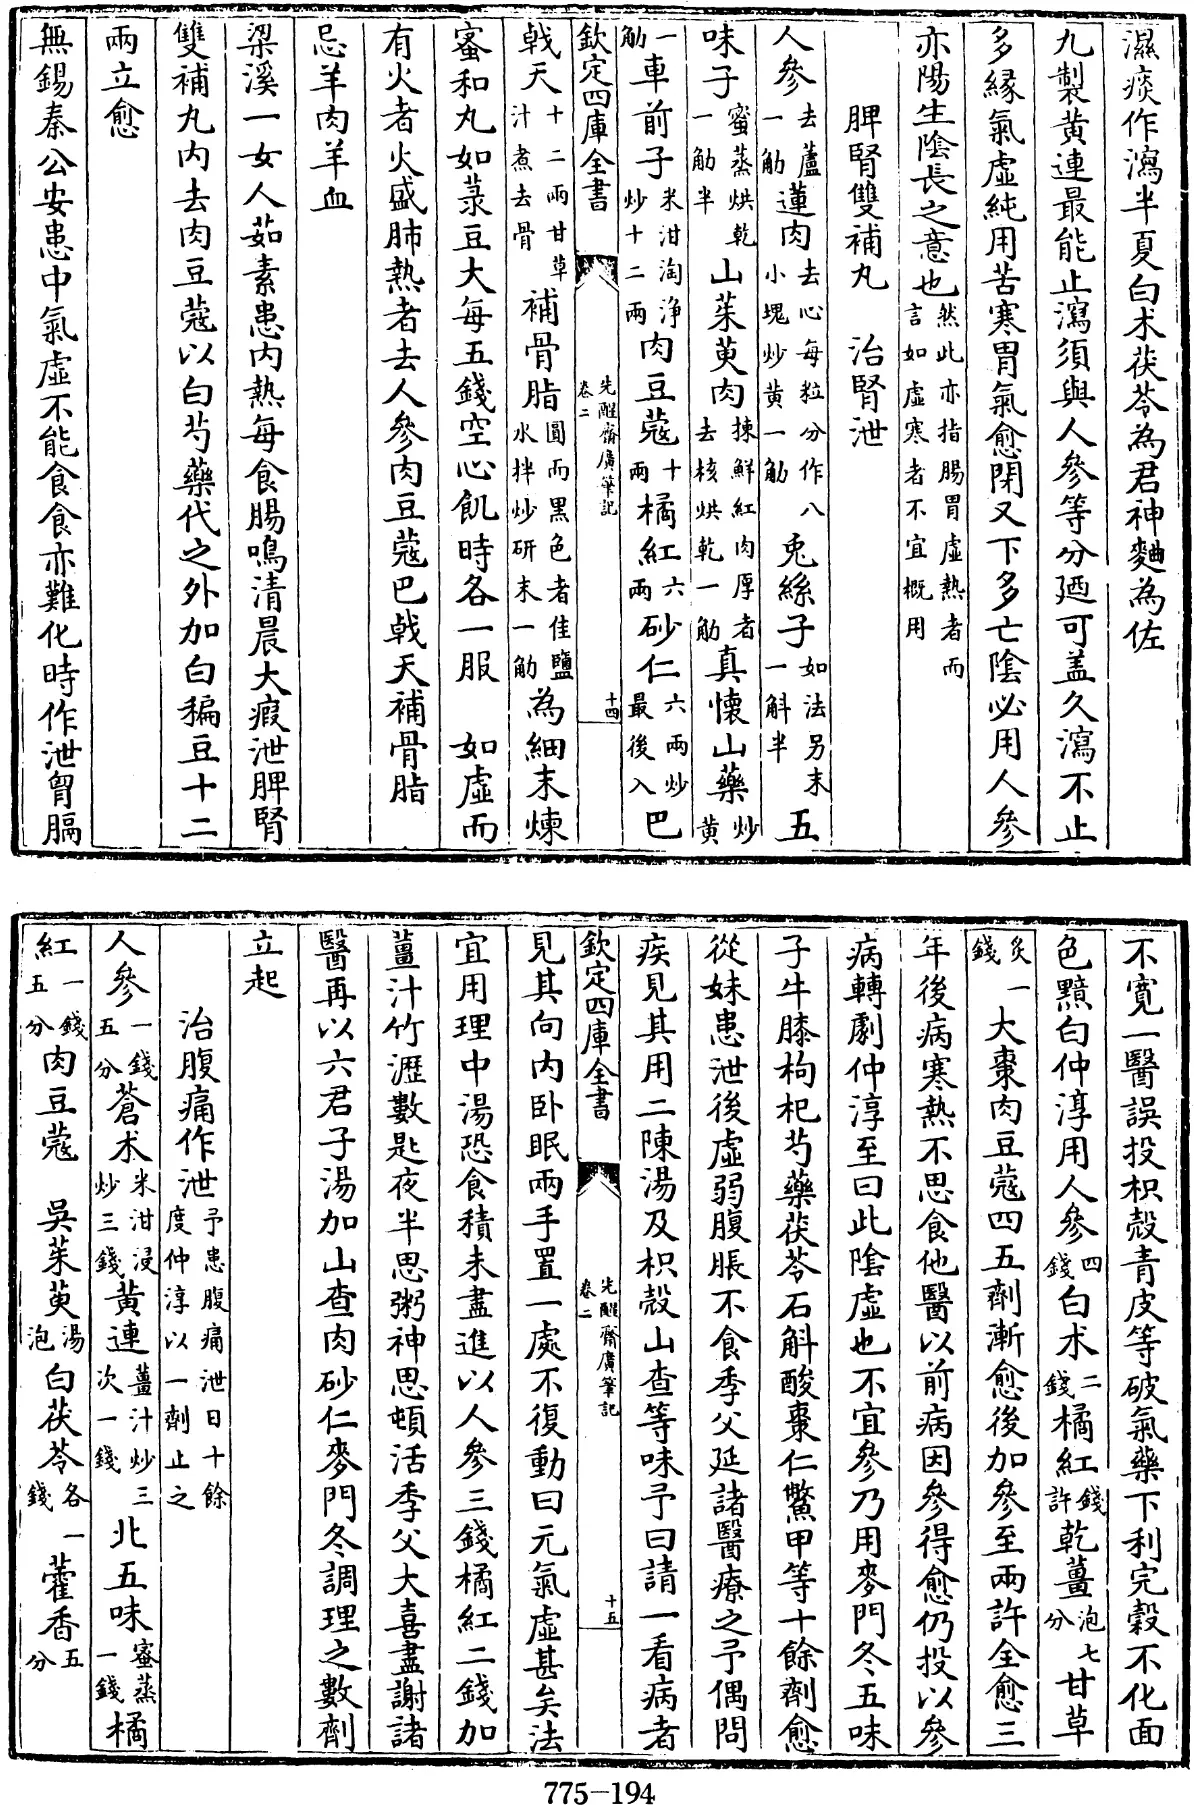 濕痰作瀉半夏白术茯苓為君神麯為佐
九製黃連最能止瀉須與人參等分廼可盖久瀉不止
多緣氣虛純用苦寒胃氣愈閉又下多亡陰必用人參
亦陽生陰長之意也然此亦指腸胃虛熱者而言如虛寒者不宜概用
脾腎雙補丸　治腎泄
人參去蘆一觔蓮肉去心每粒分作八小塊炒黃一觔兎絲子如法另末一斛半五
味子蜜蒸烘乾一觔半山茱萸肉揀鮮紅肉厚者去核烘乾一觔真懷山藥炒黃
一觔車前子米泔淘淨炒十二兩肉豆蔻十兩橘紅六兩砂仁六兩炒最後入巴
欽定四庫全書　先醒齋廣筆記卷二　十四
戟天十二兩甘草汁煮去骨補骨脂圓而黑色者佳鹽水拌炒研末一觔為細末煉
蜜和丸如菉豆大每五錢空心飢時各一服　如虛而
有火者火盛肺熱者去人參肉豆蔻巴戟天補骨脂
忌羊肉羊血
梁溪一女人茹素患內熱每食腸鳴清晨大瘕泄脾腎
雙補丸內去肉豆蔻以白芍藥代之外加白稨豆十二
兩立愈
無錫秦公安患中氣虛不能食食亦難化時作泄胷膈
不寬一醫誤投枳殼青皮等破氣藥下利完穀不化面
色黯白仲淳用人參四錢白术二錢橘紅錢許乾薑泡七分甘草
炙一錢大棗肉豆蔻四五劑漸愈後加參至兩許全愈三
年後病寒熱不思食他醫以前病因參得愈仍投以參
病轉劇仲淳至曰此陰虛也不宜參乃用麥門冬五味
子牛膝枸杞芍藥茯苓石斛酸棗仁鱉甲等十餘劑愈
從妹患泄後虛弱腹脹不食季父延諸醫療之予偶問
疾見其用二陳湯及枳殼山查等味予曰請一看病者
欽定四庫全書　先醒齋廣筆記卷二　十五
見其向內卧眠兩手置一處不復動曰元氣虛甚矣法
宜用理中湯恐食積未盡進以人參三錢橘紅二錢加
薑汁竹瀝數匙夜半思粥神思頓活季父大喜盡謝諸
醫再以六君子湯加山查肉砂仁麥門冬調理之數劑
立起
治腹痛作泄予患腹痛泄日十餘度仲淳以一劑止之
人參一錢五分蒼术米泔浸炒三錢黃連薑汁炒三次一錢北五味蜜蒸一錢橘
紅一錢五分肉豆蔻　吳茱萸湯泡白茯苓各一錢藿香五分
775-194